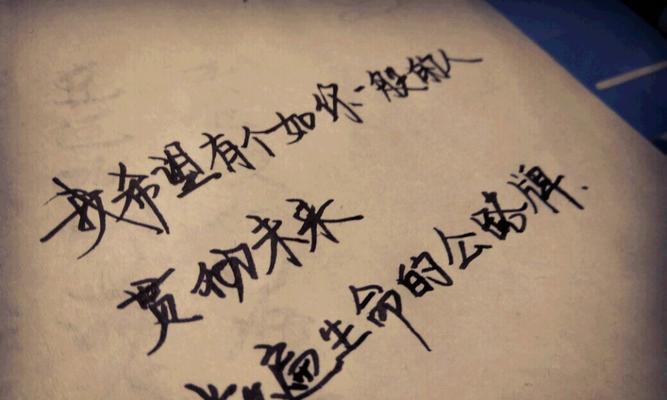 我希望有个如你一般的人
贯彻未来
数遍生命的公路牌